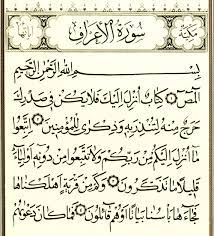 مكية سورة الأعراف آياتها
بسم الله الرحمن الرحيم
المص كتاب أنزل إليك فلا يكن في صدرك
حرج منه لتنذر به وذكرى للمؤمنين اتبعوا
ما أنزل إليكم من ربكم ولا تتبعوا من دونه أولياء
قليلا ما تذكرون وكم من قرية أهلكناها
فجاءها بأسنا بياتا أو هم قائلون فما كان دعواهم